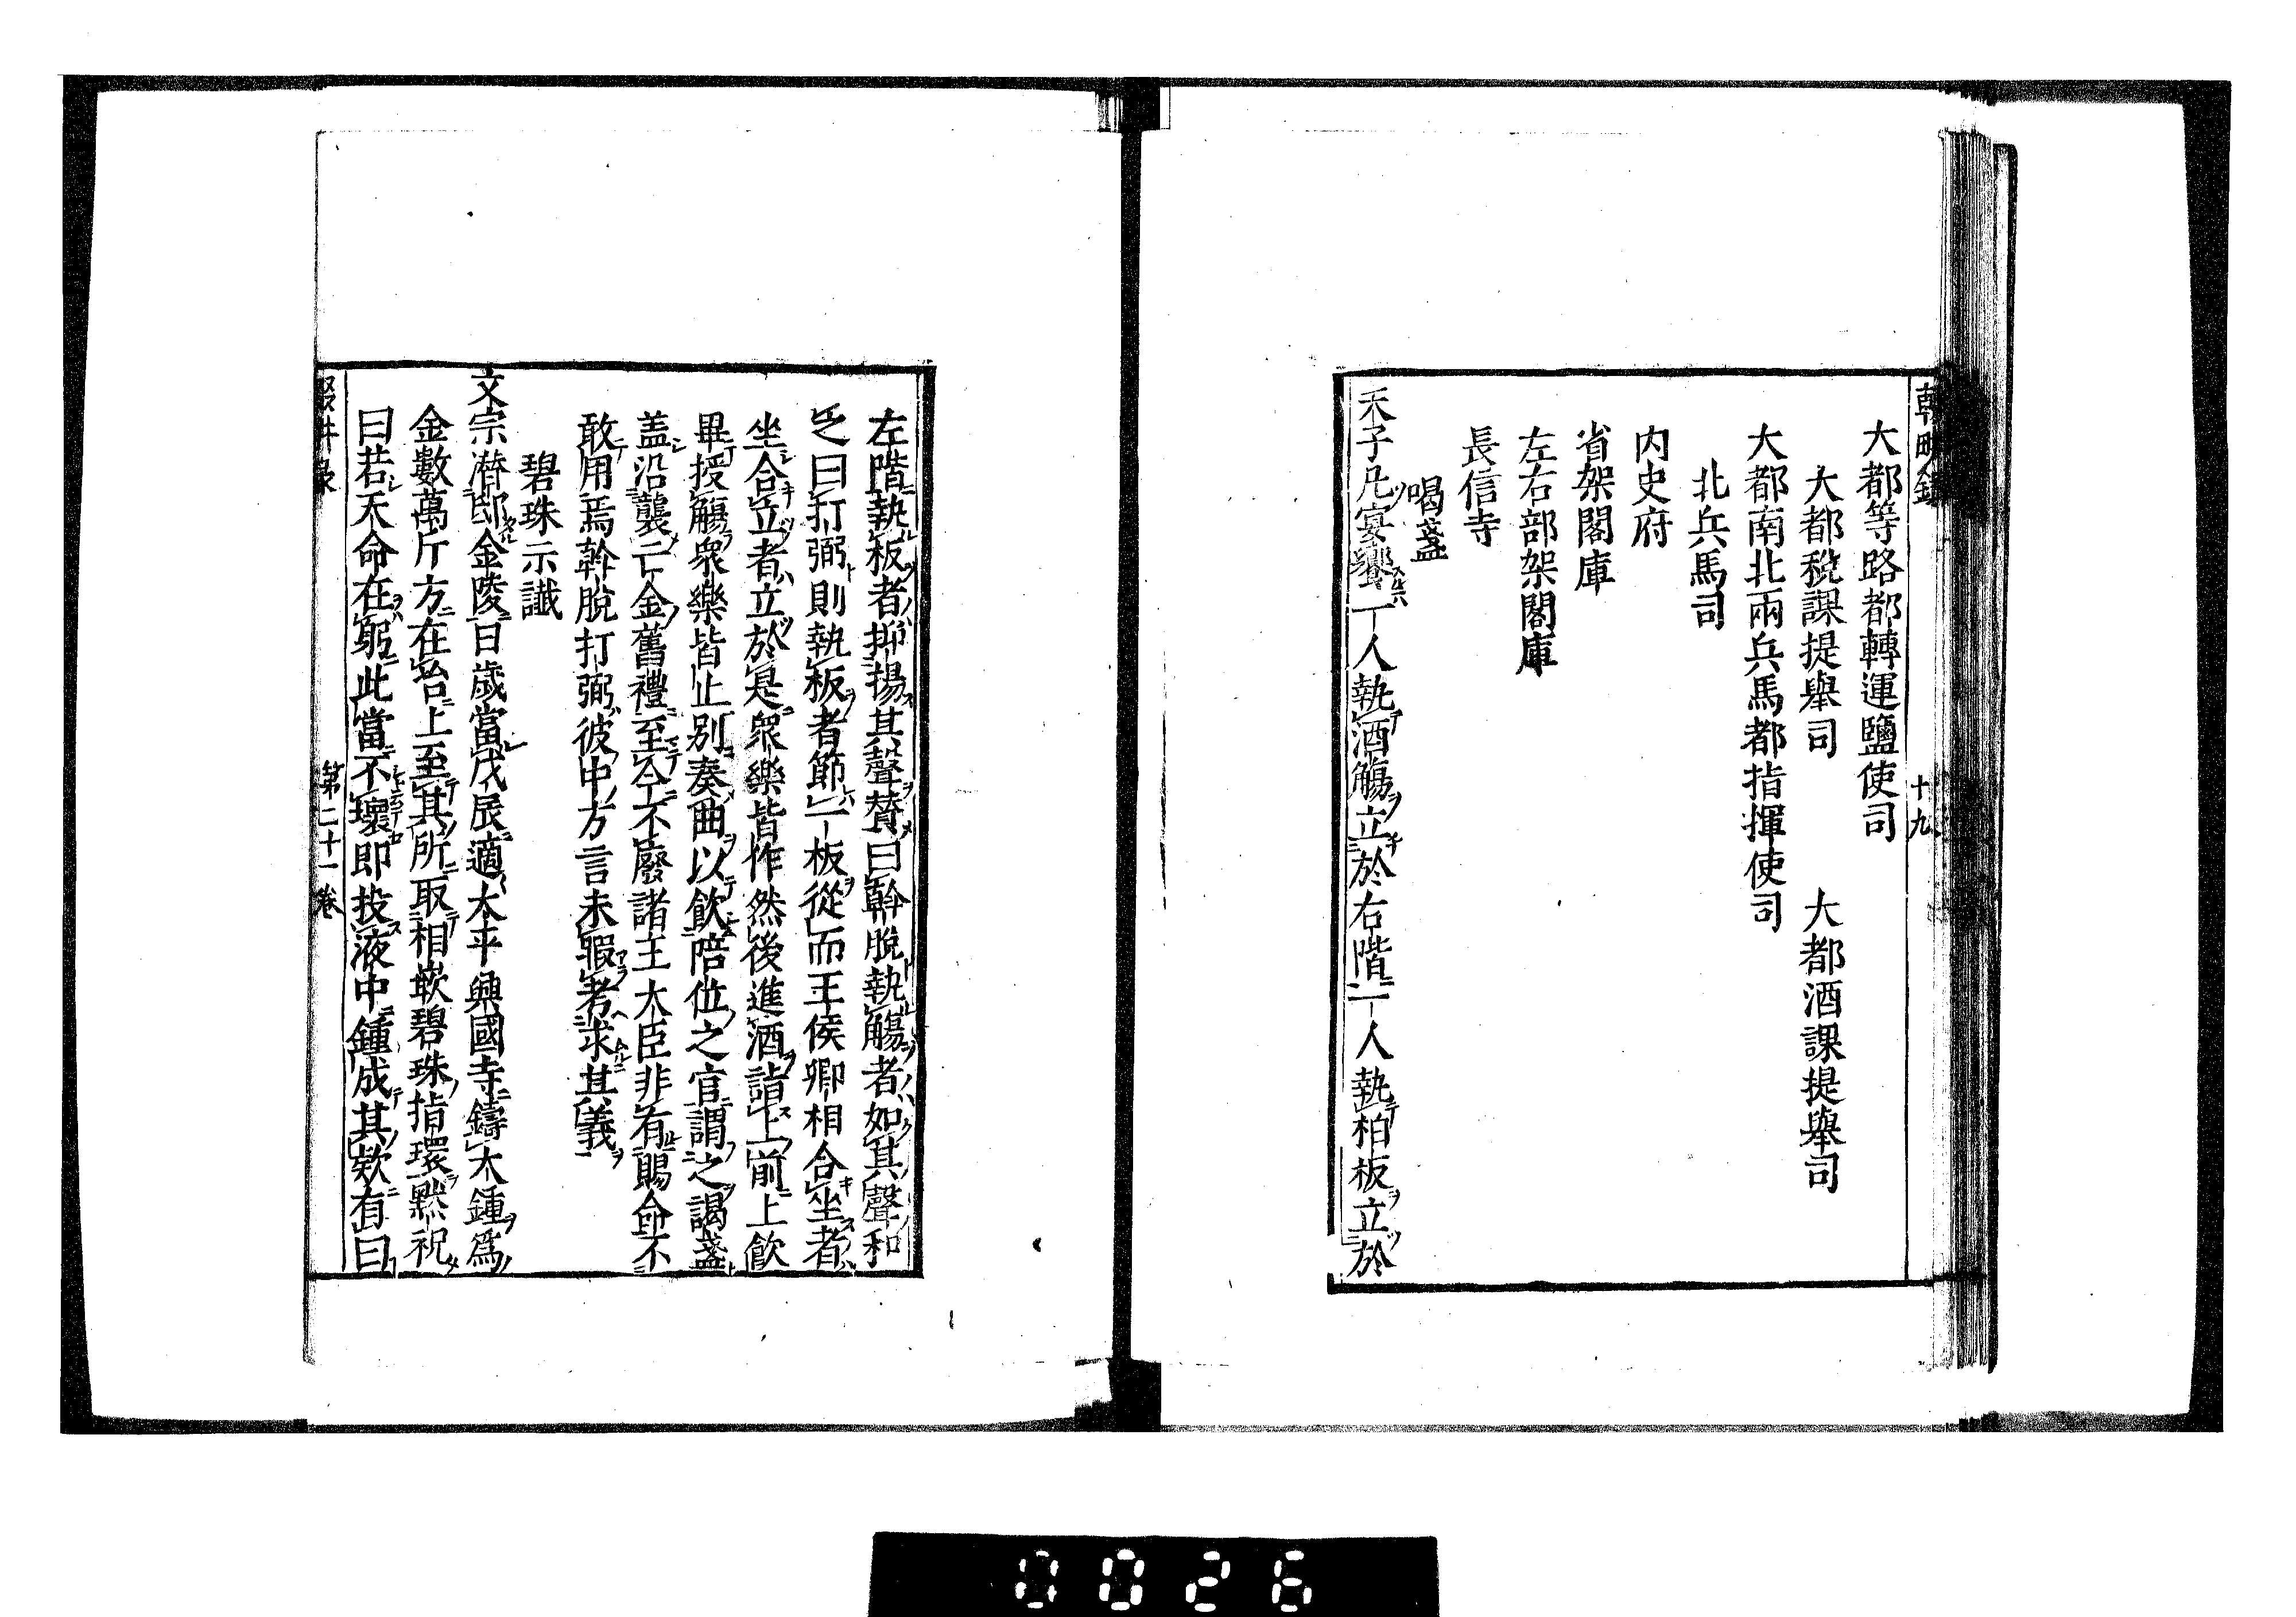 大都等路都轉運鹽使司
大都稅課提舉司　大都酒課提舉司
大都南北兩兵馬都指揮使司
北兵馬司
内史府
省架閣庫
左右部架閣庫
長信寺
喝盞
天子凡宴饗一人執酒觴立於右階一人執柏板立於
十九
左階執板者抑揚其聲賛曰斡脫執觴者如其聲和
之曰打弼則執板者節一板從而王侯卿相合坐者
坐合立者立於是衆樂皆作然後進酒詣上前上飲
畢授觴衆樂皆止別奏曲以飲陪位之官謂之謁盞
盖沿襲亡金舊禮至今不廢諸王大臣非有賜命不
敢用焉斡脫打弼彼中方言未暇考求其義
碧珠示讖
文宗潜邸金陵日歲當戊辰適太平興國寺鑄大鍾爲
金數萬斤方在冶上至其所取相嵌碧珠指環默祝
曰若天命在躬此當不壞即投液中鍾成其欵有曰
第二十一卷
0026